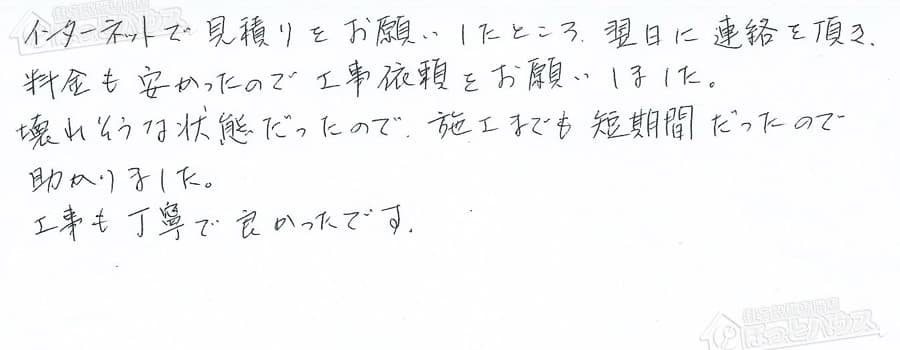 インターネットで見積りをお願いしたところ、翌日に連絡を頂き、
料金も安かったので工事依頼をお願いしました。
壊れそうな状態だったので、施工までも短期間だったので
助かりました。
工事も丁寧で良かったです。
ほっとハウス